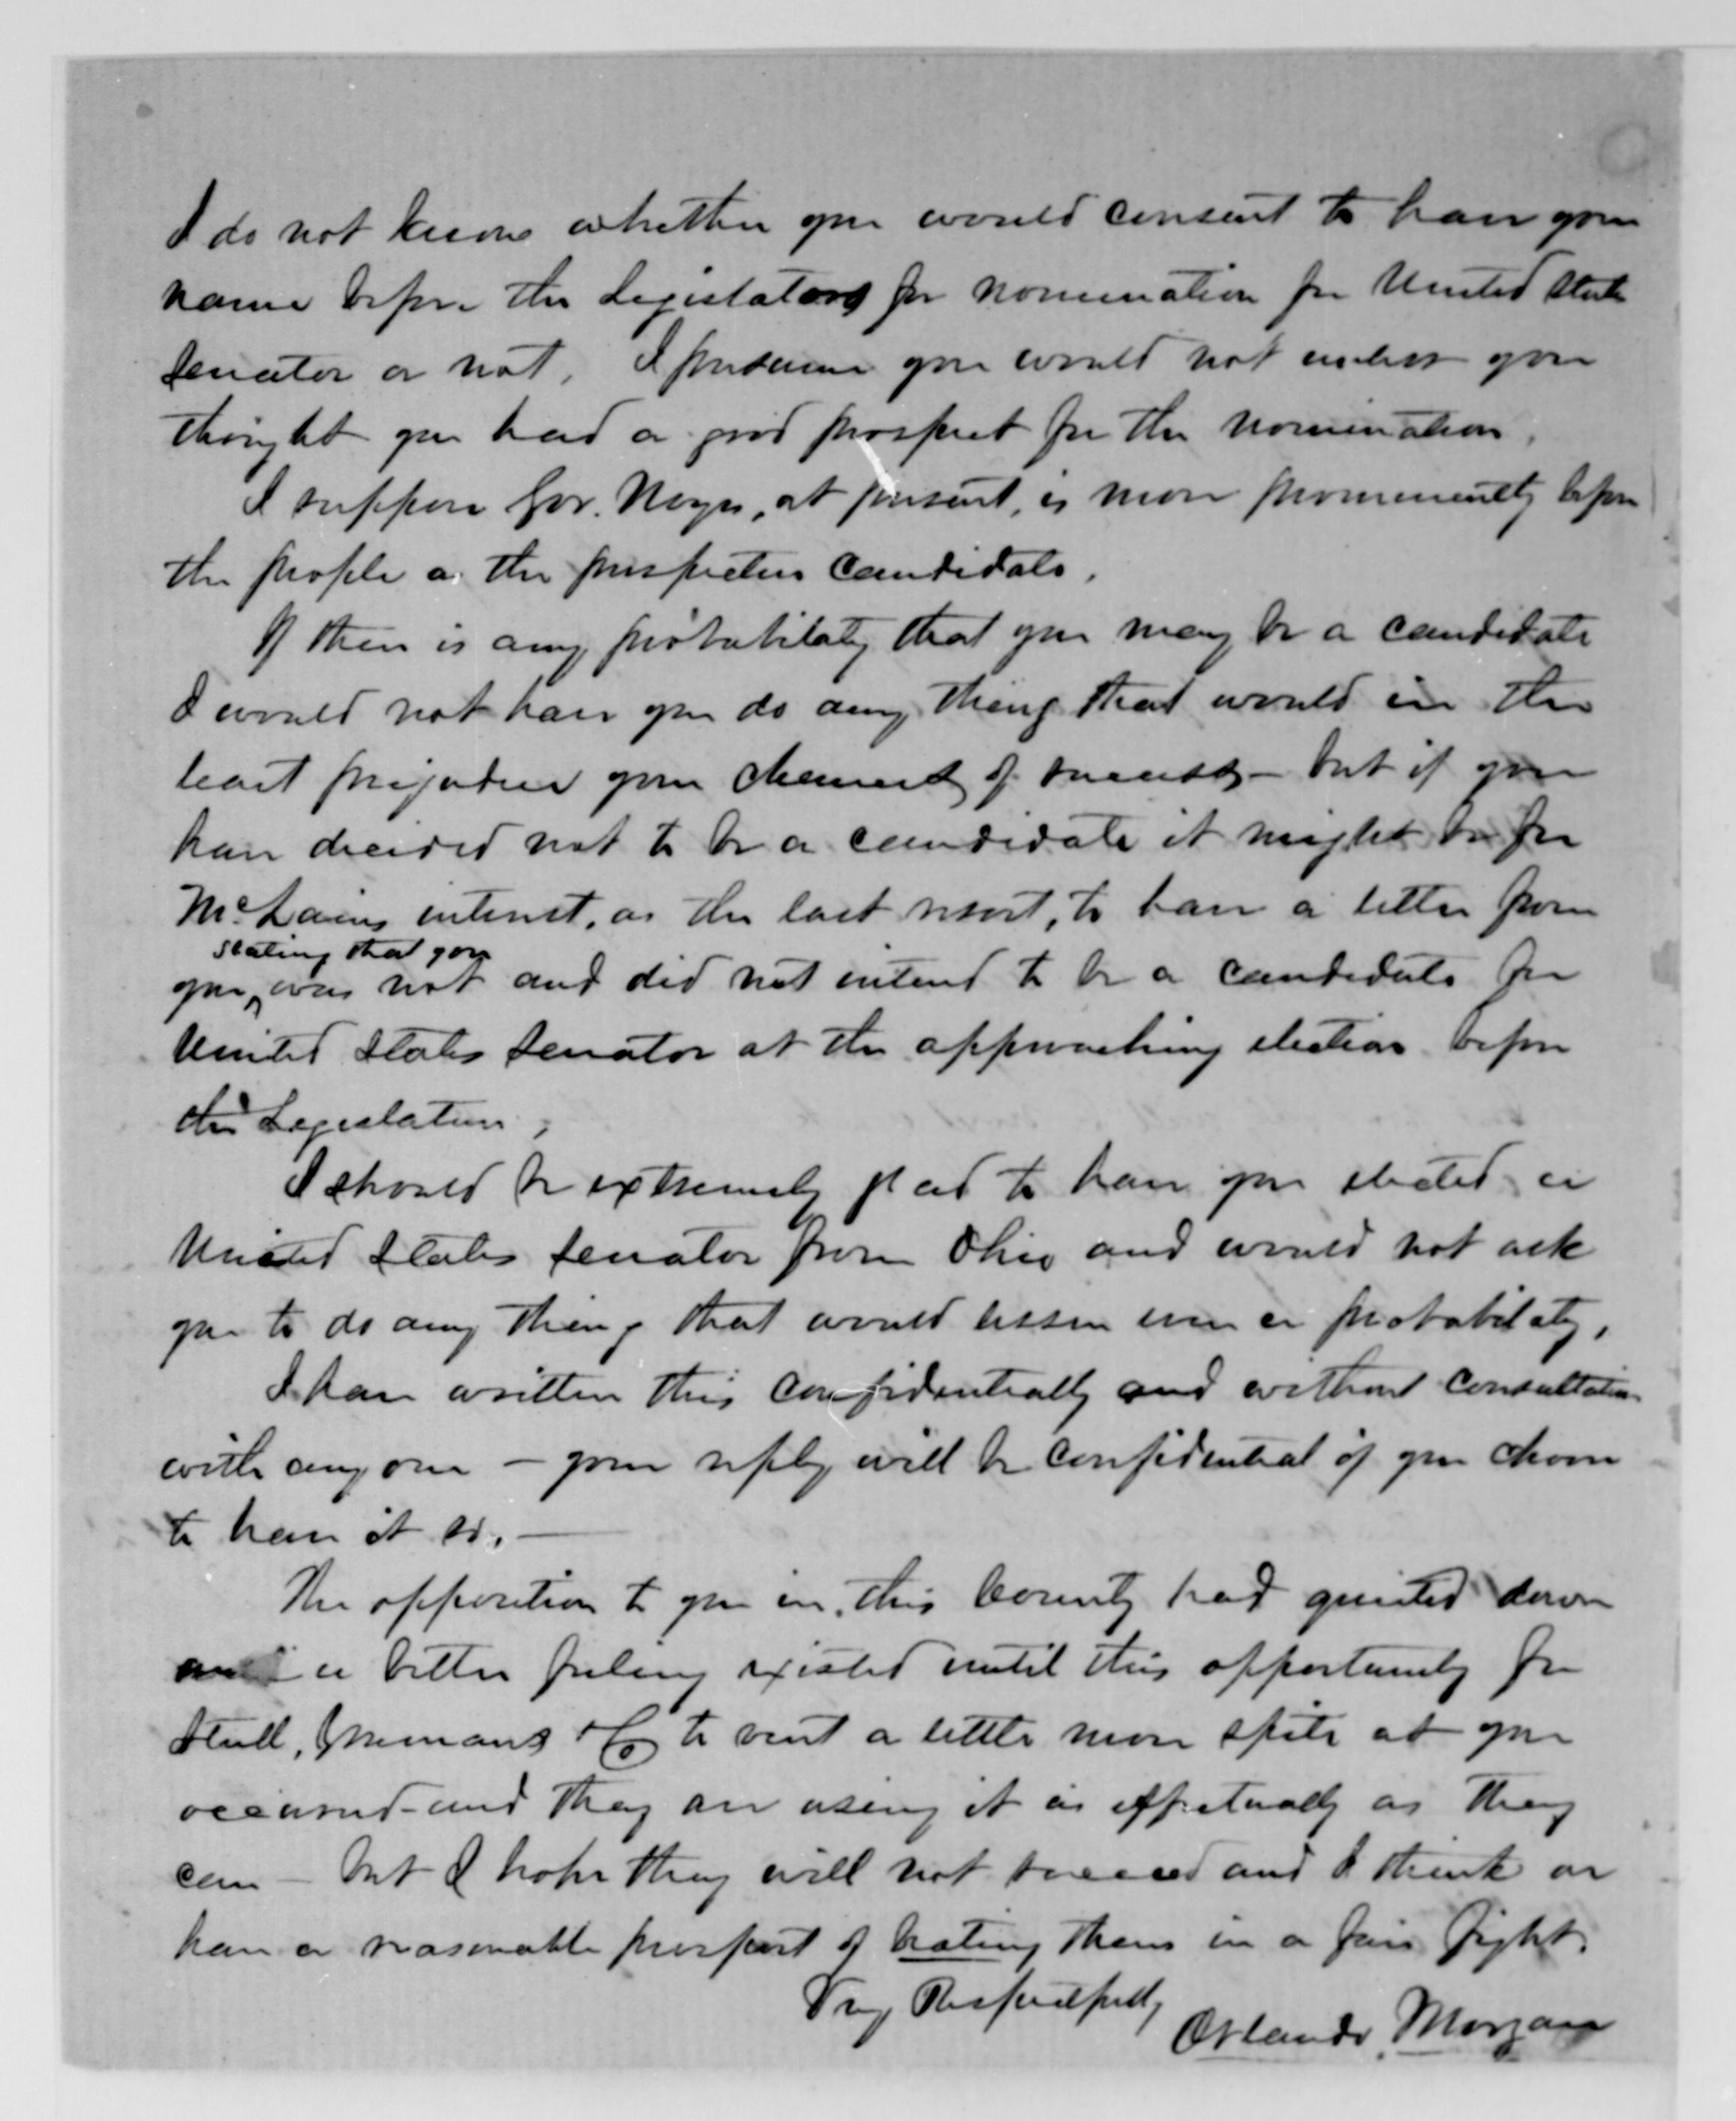 I do not know whether you would consent to have your
name before the Legislators for nomination for United States
Senator or not. I presume you would not unless you
thought you had a good prospect for the nomination.
I suppose Gov. Noyes, at present, is more prominently before
the people as the prospective candidate.
If there is any probability that you may be a candidate
I would not have you do any thing that would in the
least prejudice your chances of success – but if you
have decided not to be a candidate it might be for
McLains interest, as the last resort, to have a letter from
stating that you
you was not and did not intend to be a candidate for
United States Senator at the approaching election before
the Legislature,
I should be extremely glad to have you elected a
United States Senator from Ohio and would not ask
you to do any thing that would lessen even a probability,
I have written this confidentially and without consultation
with any one – your reply will be confidential if you choose
to have it so. –
The opposition to you in this County had quieted down
and a better feeling existed until this opportunity for
Stull, &Co to vent a little more spite at you
occurred – and they are using it as effectually as they
can – but I hope they will not succeed and I think we
have a reasonable prospect of beating them in a fair fight.
Very Respectfully
Orlando Morgan